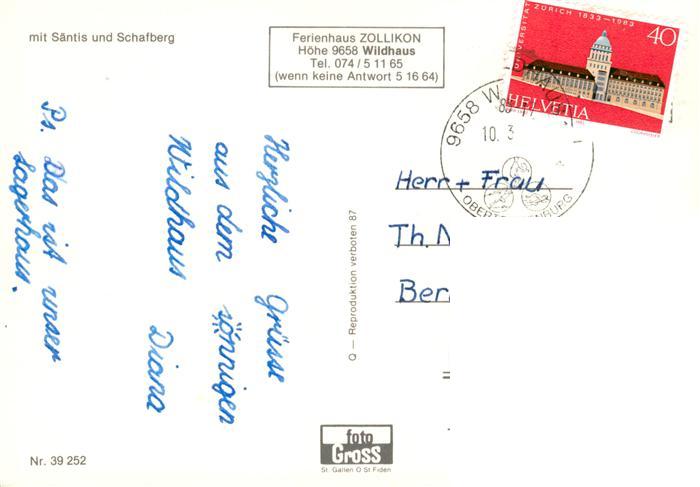 mit Säntis und Schafberg
Ferienhaus ZOLLIKON
Höhe 9658 Wildhaus
Tel. 074 / 5 11 65
(wenn keine Antwort 5 16 64)
UNIVERSITÄT ZÜRICH 1833–1983
40
HELVETIA
9658 W
10. 3
OBERT
NBURG
Herzliche Grüsse
aus dem sonnigen
Wildhaus Diana
Ps. Das ist unser
Lagerhaus.
Q — Reproduktion verboten 87
Herr + Frau
Th.
Ber
Nr. 39 252
foto
Gross
St. Gallen O St Fiden